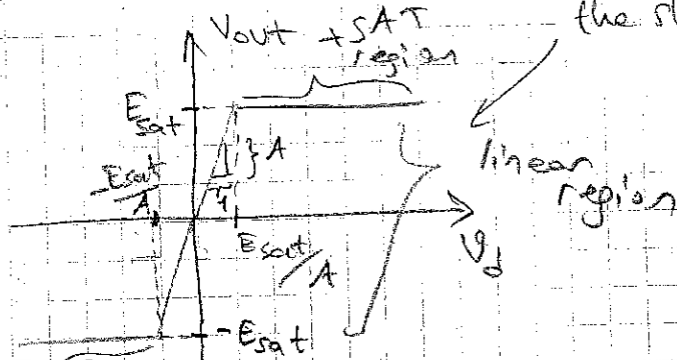 the sl
Vout + SAT
region
Esat
} A
1
linear
region
Esat/A
Esat/A
Vd
-Esat